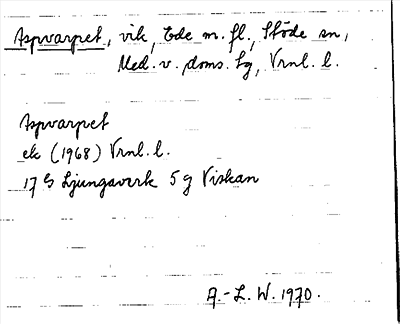 Aspvarpet, vik, Ede m.fl., Stöde sn,
Med. v. doms. tg, Vrnl. l.
Aspvarpet
ek (1968) Vrnl. l.
17 G Ljungaverk 5 g Viskan
A.-L. W. 1970.